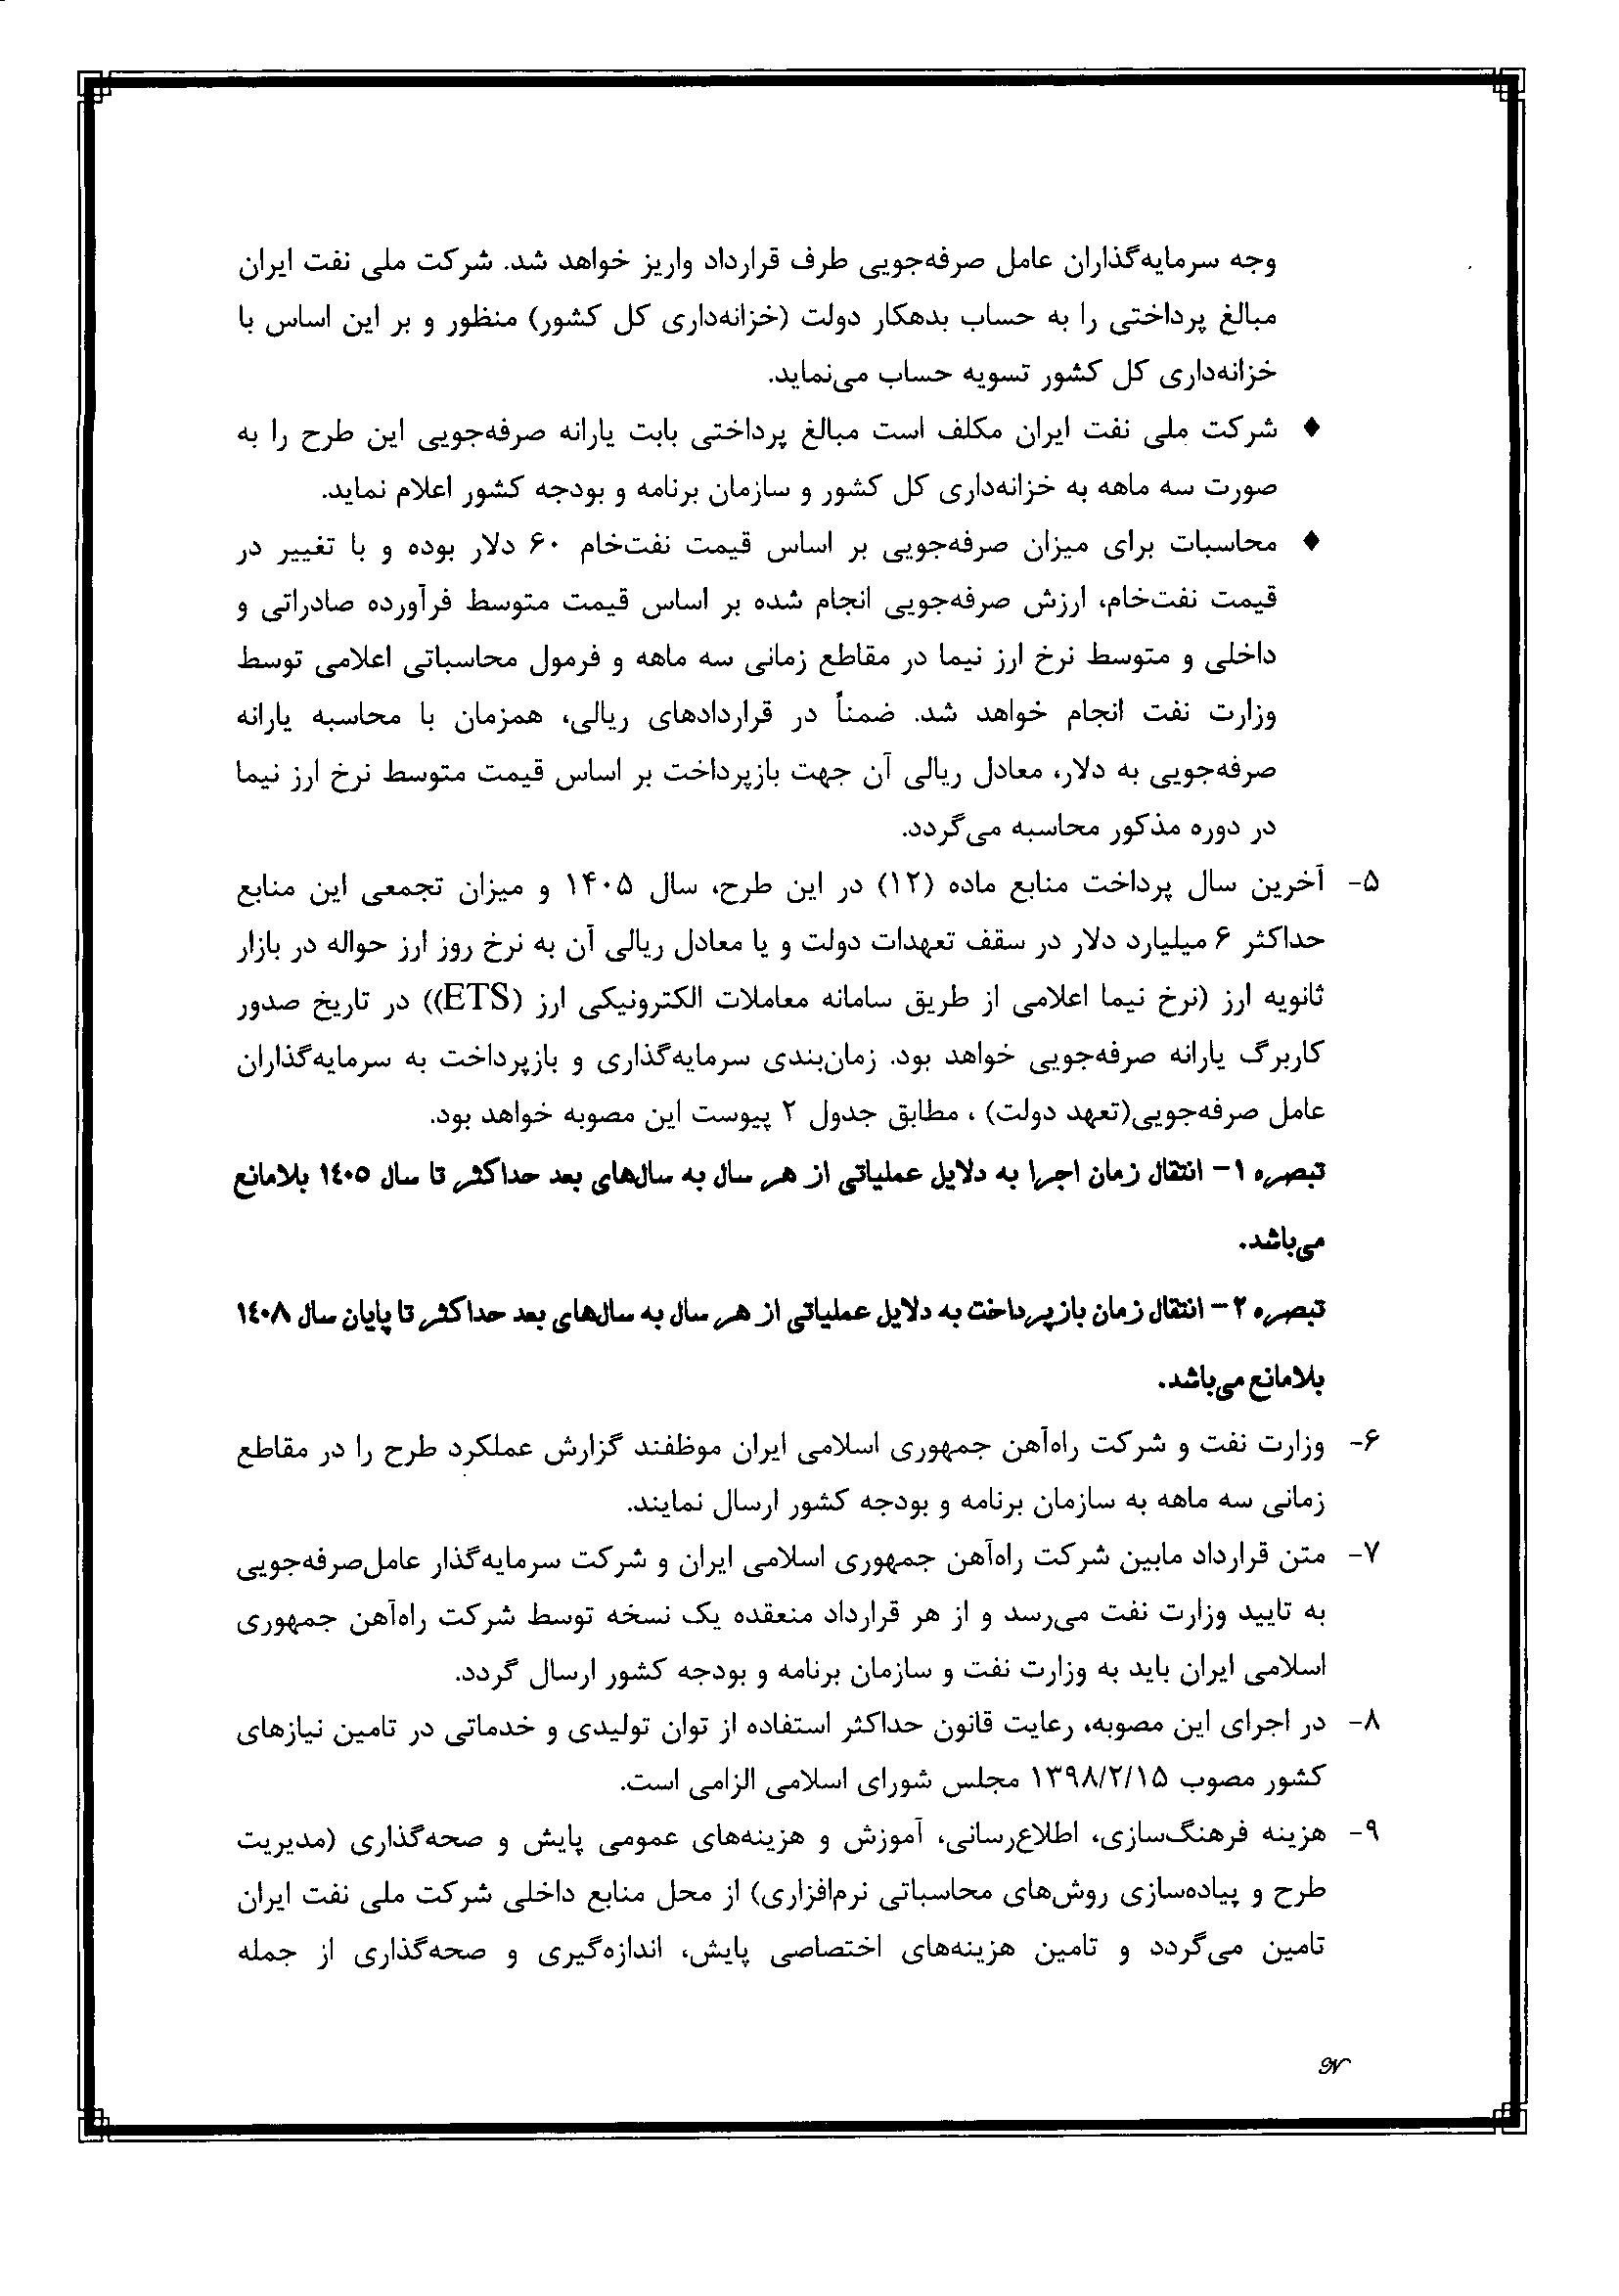 وجه سرمایه‌گذاران عامل صرفه‌جویی طرف قرارداد واریز خواهد شد. شرکت ملی نفت ایران
مبالغ پرداختی را به حساب بدهکار دولت (خزانه‌داری کل کشور) منظور و بر این اساس با
خزانه‌داری کل کشور تسویه حساب می‌نماید.
♦ شرکت ملی نفت ایران مکلف است مبالغ پرداختی بابت یارانه صرفه‌جویی این طرح را به
صورت سه ماهه به خزانه‌داری کل کشور و سازمان برنامه و بودجه کشور اعلام نماید.
♦ محاسبات برای میزان صرفه‌جویی بر اساس قیمت نفت‌خام ۶۰ دلار بوده و با تغییر در
قیمت نفت‌خام، ارزش صرفه‌جویی انجام شده بر اساس قیمت متوسط فرآورده صادراتی و
داخلی و متوسط نرخ ارز نیما در مقاطع زمانی سه ماهه و فرمول محاسباتی اعلامی توسط
وزارت نفت انجام خواهد شد. ضمناً در قراردادهای ریالی، همزمان با محاسبه یارانه
صرفه‌جویی به دلار، معادل ریالی آن جهت بازپرداخت بر اساس قیمت متوسط نرخ ارز نیما
در دوره مذکور محاسبه می‌گردد.
۵- آخرین سال پرداخت منابع ماده (۱۲) در این طرح، سال ۱۴۰۵ و میزان تجمعی این منابع
حداکثر ۶ میلیارد دلار در سقف تعهدات دولت و یا معادل ریالی آن به نرخ روز ارز حواله در بازار
ثانویه ارز (نرخ نیما اعلامی از طریق سامانه معاملات الکترونیکی ارز (ETS)) در تاریخ صدور
کاربرگ یارانه صرفه‌جویی خواهد بود. زمان‌بندی سرمایه‌گذاری و بازپرداخت به سرمایه‌گذاران
عامل صرفه‌جویی(تعهد دولت) ، مطابق جدول ۲ پیوست این مصوبه خواهد بود.
تبصره ۱- انتقال زمان اجرا به دلایل عملیاتی از هر سال به سال‌های بعد حداکثر تا سال ۱٤۰۵ بلامانع
می‌باشد.
تبصره ۲- انتقال زمان بازپرداخت به دلایل عملیاتی از هر سال به سال‌های بعد حداکثر تا پایان سال ۱٤۰۸
بلامانع می‌باشد.
۶- وزارت نفت و شرکت راه‌آهن جمهوری اسلامی ایران موظفند گزارش عملکرد طرح را در مقاطع
زمانی سه ماهه به سازمان برنامه و بودجه کشور ارسال نمایند.
۷- متن قرارداد مابین شرکت راه‌آهن جمهوری اسلامی ایران و شرکت سرمایه‌گذار عامل‌صرفه‌جویی
به تایید وزارت نفت می‌رسد و از هر قرارداد منعقده یک نسخه توسط شرکت راه‌آهن جمهوری
اسلامی ایران باید به وزارت نفت و سازمان برنامه و بودجه کشور ارسال گردد.
۸- در اجرای این مصوبه، رعایت قانون حداکثر استفاده از توان تولیدی و خدماتی در تامین نیازهای
کشور مصوب ۱۳۹۸/۲/۱۵ مجلس شورای اسلامی الزامی است.
۹- هزینه فرهنگ‌سازی، اطلاع‌رسانی، آموزش و هزینه‌های عمومی پایش و صحه‌گذاری (مدیریت
طرح و پیاده‌سازی روش‌های محاسباتی نرم‌افزاری) از محل منابع داخلی شرکت ملی نفت ایران
تامین می‌گردد و تامین هزینه‌های اختصاصی پایش، اندازه‌گیری و صحه‌گذاری از جمله